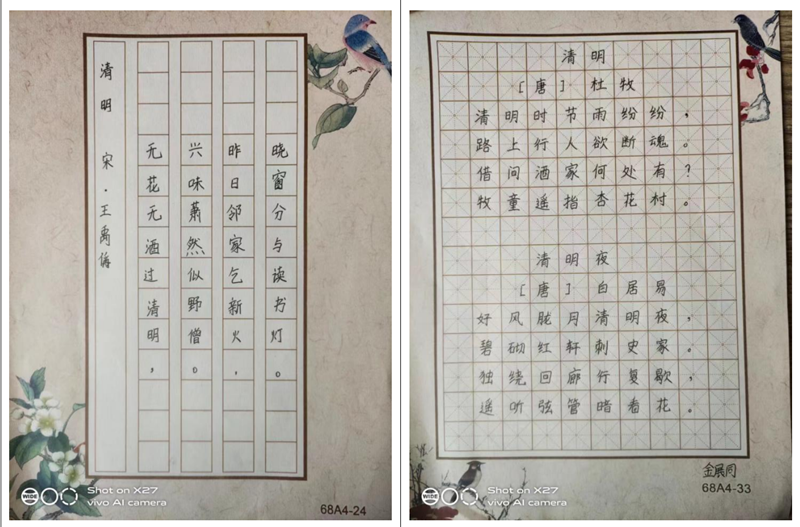 清明 宋·王禹偁
无花无酒过清明，
兴味萧然似野僧。
昨日邻家乞新火，
晓窗分与读书灯。
Shot on X27
vivo AI camera
68A4-24
清明
［唐］ 杜牧
清明时节雨纷纷，
路上行人欲断魂。
借问酒家何处有？
牧童遥指杏花村。
清明夜
［唐］ 白居易
好风胧月清明夜，
碧砌红轩刺史家。
独绕回廊行复歇，
遥听弦管暗看花。
金展同
Shot on X27
vivo AI camera
68A4-33